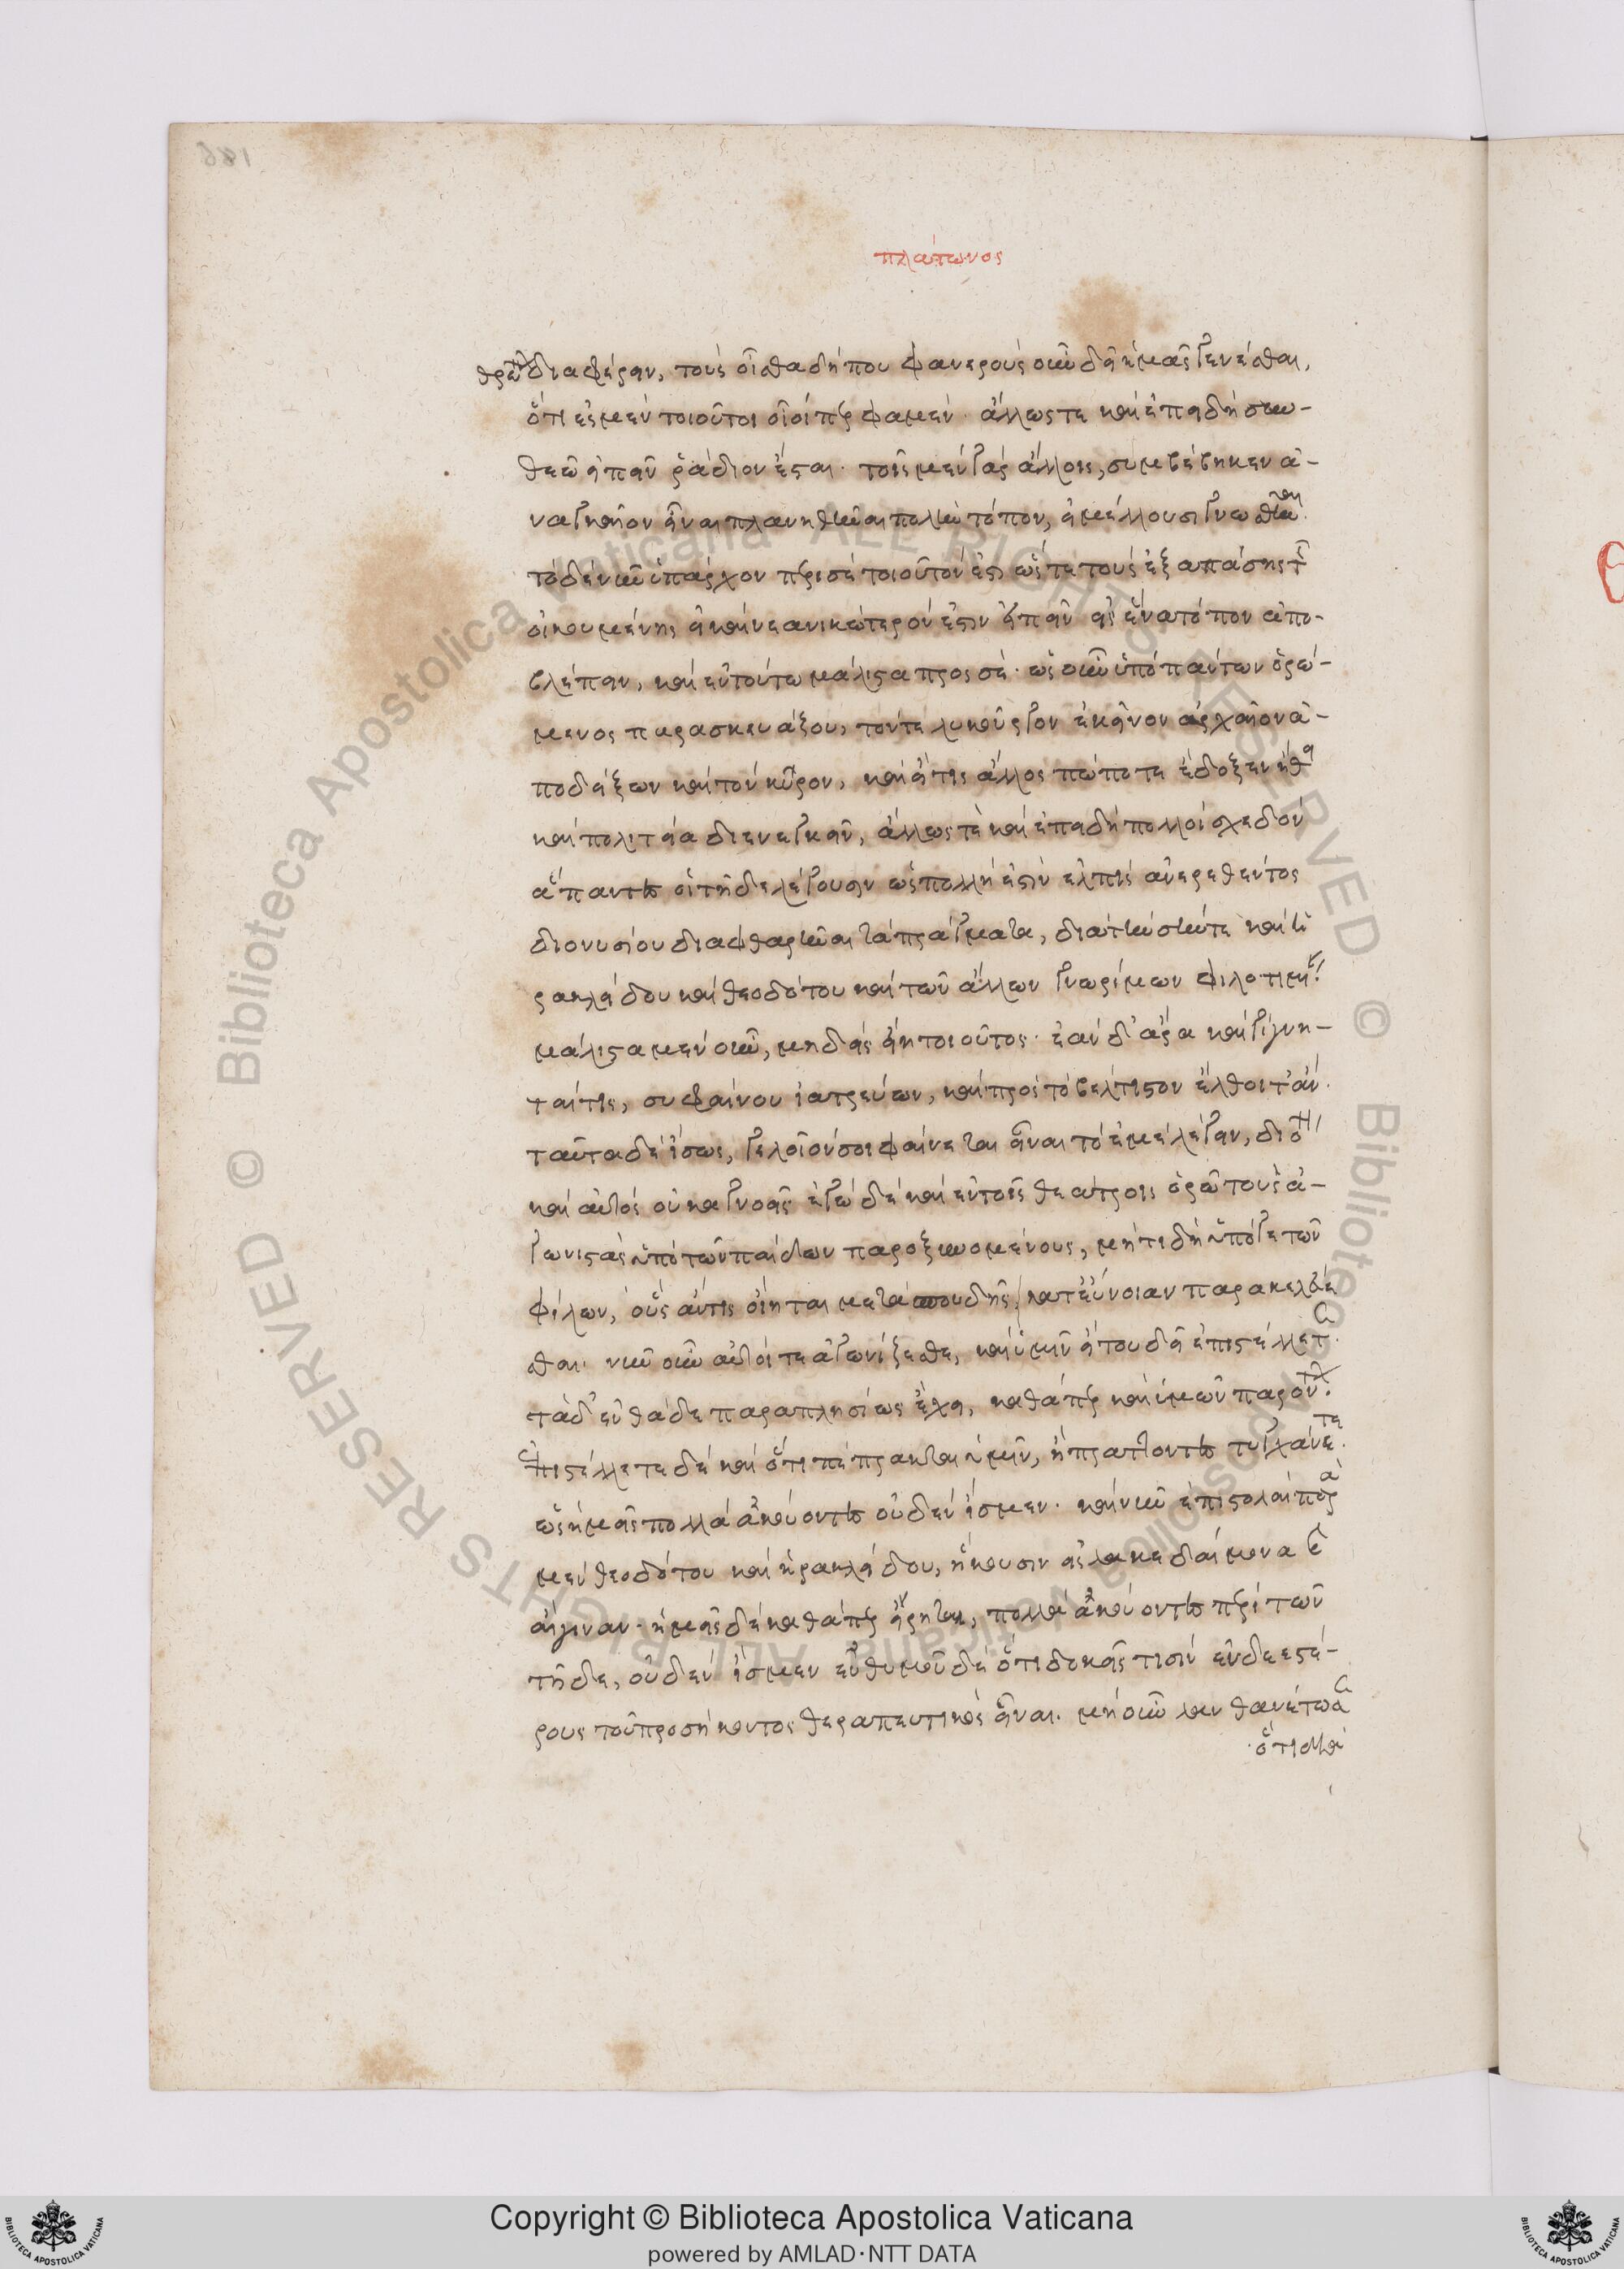 πλάτωνος
θρώπων διαφέρειν, τοὺς οἶσθα δήπου φανεροὺς οὖν δεῖ ἡμᾶς γενέσθαι,
ὅτι ἐσμὲν τοιοῦτοι οἷοί περ φαμὲν· ἄλλως τε καὶ ἐπειδὴ σὺν
θεῷ εἰπεῖν ῥάδιον ἔσται· τοῖς μὲν γὰρ ἄλλοις, συμβέβηκεν ἀ-
ναγκαῖον εἶναι πλανηθῆναι πολὺν τόπον, εἰ μέλλουσι γνωσθῆναι.
τὸ δὲ νῦν ὑπάρχον περὶ σὲ τοιοῦτόν ἐστιν ὥστε τοὺς ἐξ ἁπάσης τῆς
οἰκουμένης εἰ καὶ νεανικώτερόν ἐστιν εἰπεῖν εἰς ἕνα τόπον ἀπο-
βλέπειν, καὶ ἐν τούτῳ μάλιστα πρὸς σέ· ὡς οὖν ὑπὸ πάντων ὁρώ-
μενος παρασκευάζου, τόν τε λυκοῦργον ἐκεῖνον ἀρχαῖον ἀ-
ποδείξων καὶ τὸν κῦρον, καὶ εἴ τις ἄλλος πώποτε ἔδοξεν ἤθει
καὶ πολιτείᾳ διενεγκεῖν, ἄλλως τὲ καὶ ἐπειδὴ πολλοὶ σχεδὸν
ἅπαντες οἱ τῇδε λέγουσιν ὡς πολλή ἐστιν ἐλπὶς ἀναιρεθέντος
διονυσίου διαφθαρῆναι τὰ πράγματα, διὰ τὴν σήν τε καὶ ἡ
ρακλείδου καὶ θεοδότου καὶ τῶν ἄλλων γνωρίμων φιλοτιμίαν
μάλιστα μὲν οὖν, μηδεὶς εἴη τοιοῦτος· ἐὰν δ' ἄρα καὶ γίγνη-
ταί τις, σὺ φαίνου ἰατρεύων, καὶ πρὸς τὸ βέλτιστον ἔλθοιτ' ἄν.
ταῦτα δὲ ἴσως, γελοῖόν σοι φαίνεται εἶναι τὸ ἐμὲ λέγειν, διότι
καὶ αὐτὸς οὐκ ἀγνοεῖς· ἐγὼ δὲ καὶ ἐν τοῖς θεάτροις ὁρῶ τοὺς ἀ-
γωνιστὰς ὑπὸ τῶν παίδων παροξυνομένους, μή τι δὴ ὑπό γε τῶν
φίλων, οὓς ἄν τις οἴηται μετὰ σπουδῆς κατ' εὔνοιαν παρακελεύε
σθαι· νῦν οὖν αὐτοί τε ἀγωνίζεσθε, καὶ ὑμῖν εἴ του δεῖ ἐπιστέλλετε.
τὰ δ' ἐνθάδε παραπλησίως ἔχει, καθάπερ καὶ ὑμῶν παρόντων.
ἐπιστέλλετε δὲ καὶ ὅτι πέπρακται ὑμῖν, ἢ πράττοντες τυγχάνετε.
ὡς ἡμεῖς πολλὰ ἀκούοντες οὐδὲν ἴσμεν· καὶ νῦν ἐπιστολαὶ παρὰ
μὲν θεοδότου καὶ ἡρακλείδου, ἥκουσιν εἰς λακεδαίμονα καὶ
αἴγιναν· ἡμεῖς δὲ καθάπερ εἴρηται, πολλὰ ἀκούοντες περὶ τῶν
τῇδε, οὐδὲν ἴσμεν ἐνθυμοῦ δὲ ὅτι δοκεῖς τισὶν ἐνδεεστέ-
ρους τοῦ προσήκοντος θεραπευτικὸς εἶναι. μὴ οὖν λανθανέτω σε
ὅτι διὰ